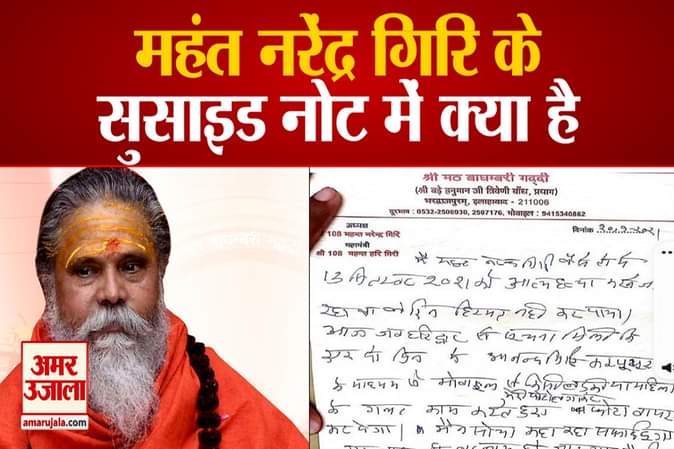 महंत नरेंद्र गिरि के
सुसाइड नोट में क्या है
अमर
उजाला
amarujala.com
श्री मठ बाघम्बरी गद्दी
(श्री बड़े हनुमान जी त्रिवेणी बाँध, प्रयाग)
भरद्वाजपुरम्, इलाहाबाद - 211006
दूरभाष : 0532-2506930, 2597176, मोबाइल : 9415340862
अध्यक्ष
108 महन्त नरेन्द्र गिरि
महामंत्री
श्री 108 महन्त हरि गिरी
दिनांक
मै महन्त नरेन्द्र गिरि
13 सितम्बर 2021 को आत्म हत्या करने जा
रहा था लेकिन हिम्मत नही कर पाया।
आज जब हरिद्वार से सूचना मिली कि
एक दो दिन मे आनन्द गिरि कम्प्यूटर
के माध्यम से मोबाइल से किसी लड़की या महिला
के गलत काम करते हुए फोटो वायरल
कर देगा। मैने सोचा कहा तक सफाई दूंगा